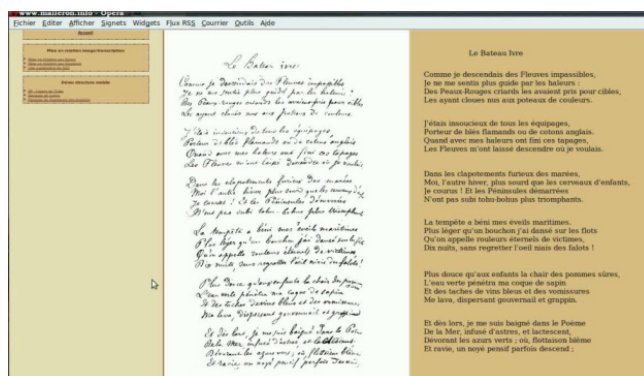 www.malleron.info - Opera
Fichier Editer Afficher Signets Widgets Flux RSS Courrier Outils Aide
Accueil
Mise en relation image/transcription
Le Bateau ivre.
Comme je descendais des Fleuves impassibles
Je ne me sentis plus guidé par les haleurs :
Des Peaux-rouges criards les avaient pris pour cibles
Les ayant cloués nus aux poteaux de couleurs.
J'étais insoucieux de tous les équipages
Porteur de blés flamands ou de cotons anglais
Quand avec mes haleurs ont fini ces tapages
Les Fleuves m'ont laissé descendre où je voulais.
Dans les clapotements furieux des marées
Moi l'autre hiver plus sourd que les cerveaux d'
Je courus ! Et les Péninsules démarrées
N'ont pas subi tohu-bohus plus triomphants.
La tempête a béni mes éveils maritimes
Plus léger qu'un bouchon j'ai dansé sur les flots
Qu'on appelle rouleurs éternels de victimes,
Dix nuits, sans regretter l'œil niais des falots !
Plus douce qu'aux enfants la chair des pommes
L'eau verte pénétra ma coque de sapin
Et des taches de vins bleus et des vomissures
Me lava, dispersant gouvernail et grappin.
Et dès lors, je me suis baigné dans le Poème
De la Mer, infusé d'astres, et lactescent,
Dévorant les azurs verts ; où, flottaison blême
Et ravie, un noyé pensif parfois descend ;
Le Bateau Ivre
Comme je descendais des Fleuves impassibles,
Je ne me sentis plus guidé par les haleurs :
Des Peaux-Rouges criards les avaient pris pour cibles,
Les ayant cloués nus aux poteaux de couleurs.
J'étais insoucieux de tous les équipages,
Porteur de blés flamands ou de cotons anglais.
Quand avec mes haleurs ont fini ces tapages,
Les Fleuves m'ont laissé descendre où je voulais.
Dans les clapotements furieux des marées,
Moi, l'autre hiver, plus sourd que les cerveaux d'enfants,
Je courus ! Et les Péninsules démarrées
N'ont pas subi tohu-bohus plus triomphants.
La tempête a béni mes éveils maritimes.
Plus léger qu'un bouchon j'ai dansé sur les flots
Qu'on appelle rouleurs éternels de victimes,
Dix nuits, sans regretter l'oeil niais des falots !
Plus douce qu'aux enfants la chair des pommes sûres,
L'eau verte pénétra ma coque de sapin
Et des taches de vins bleus et des vomissures
Me lava, dispersant gouvernail et grappin.
Et dès lors, je me suis baigné dans le Poème
De la Mer, infusé d'astres, et lactescent,
Dévorant les azurs verts ; où, flottaison blême
Et ravie, un noyé pensif parfois descend ;